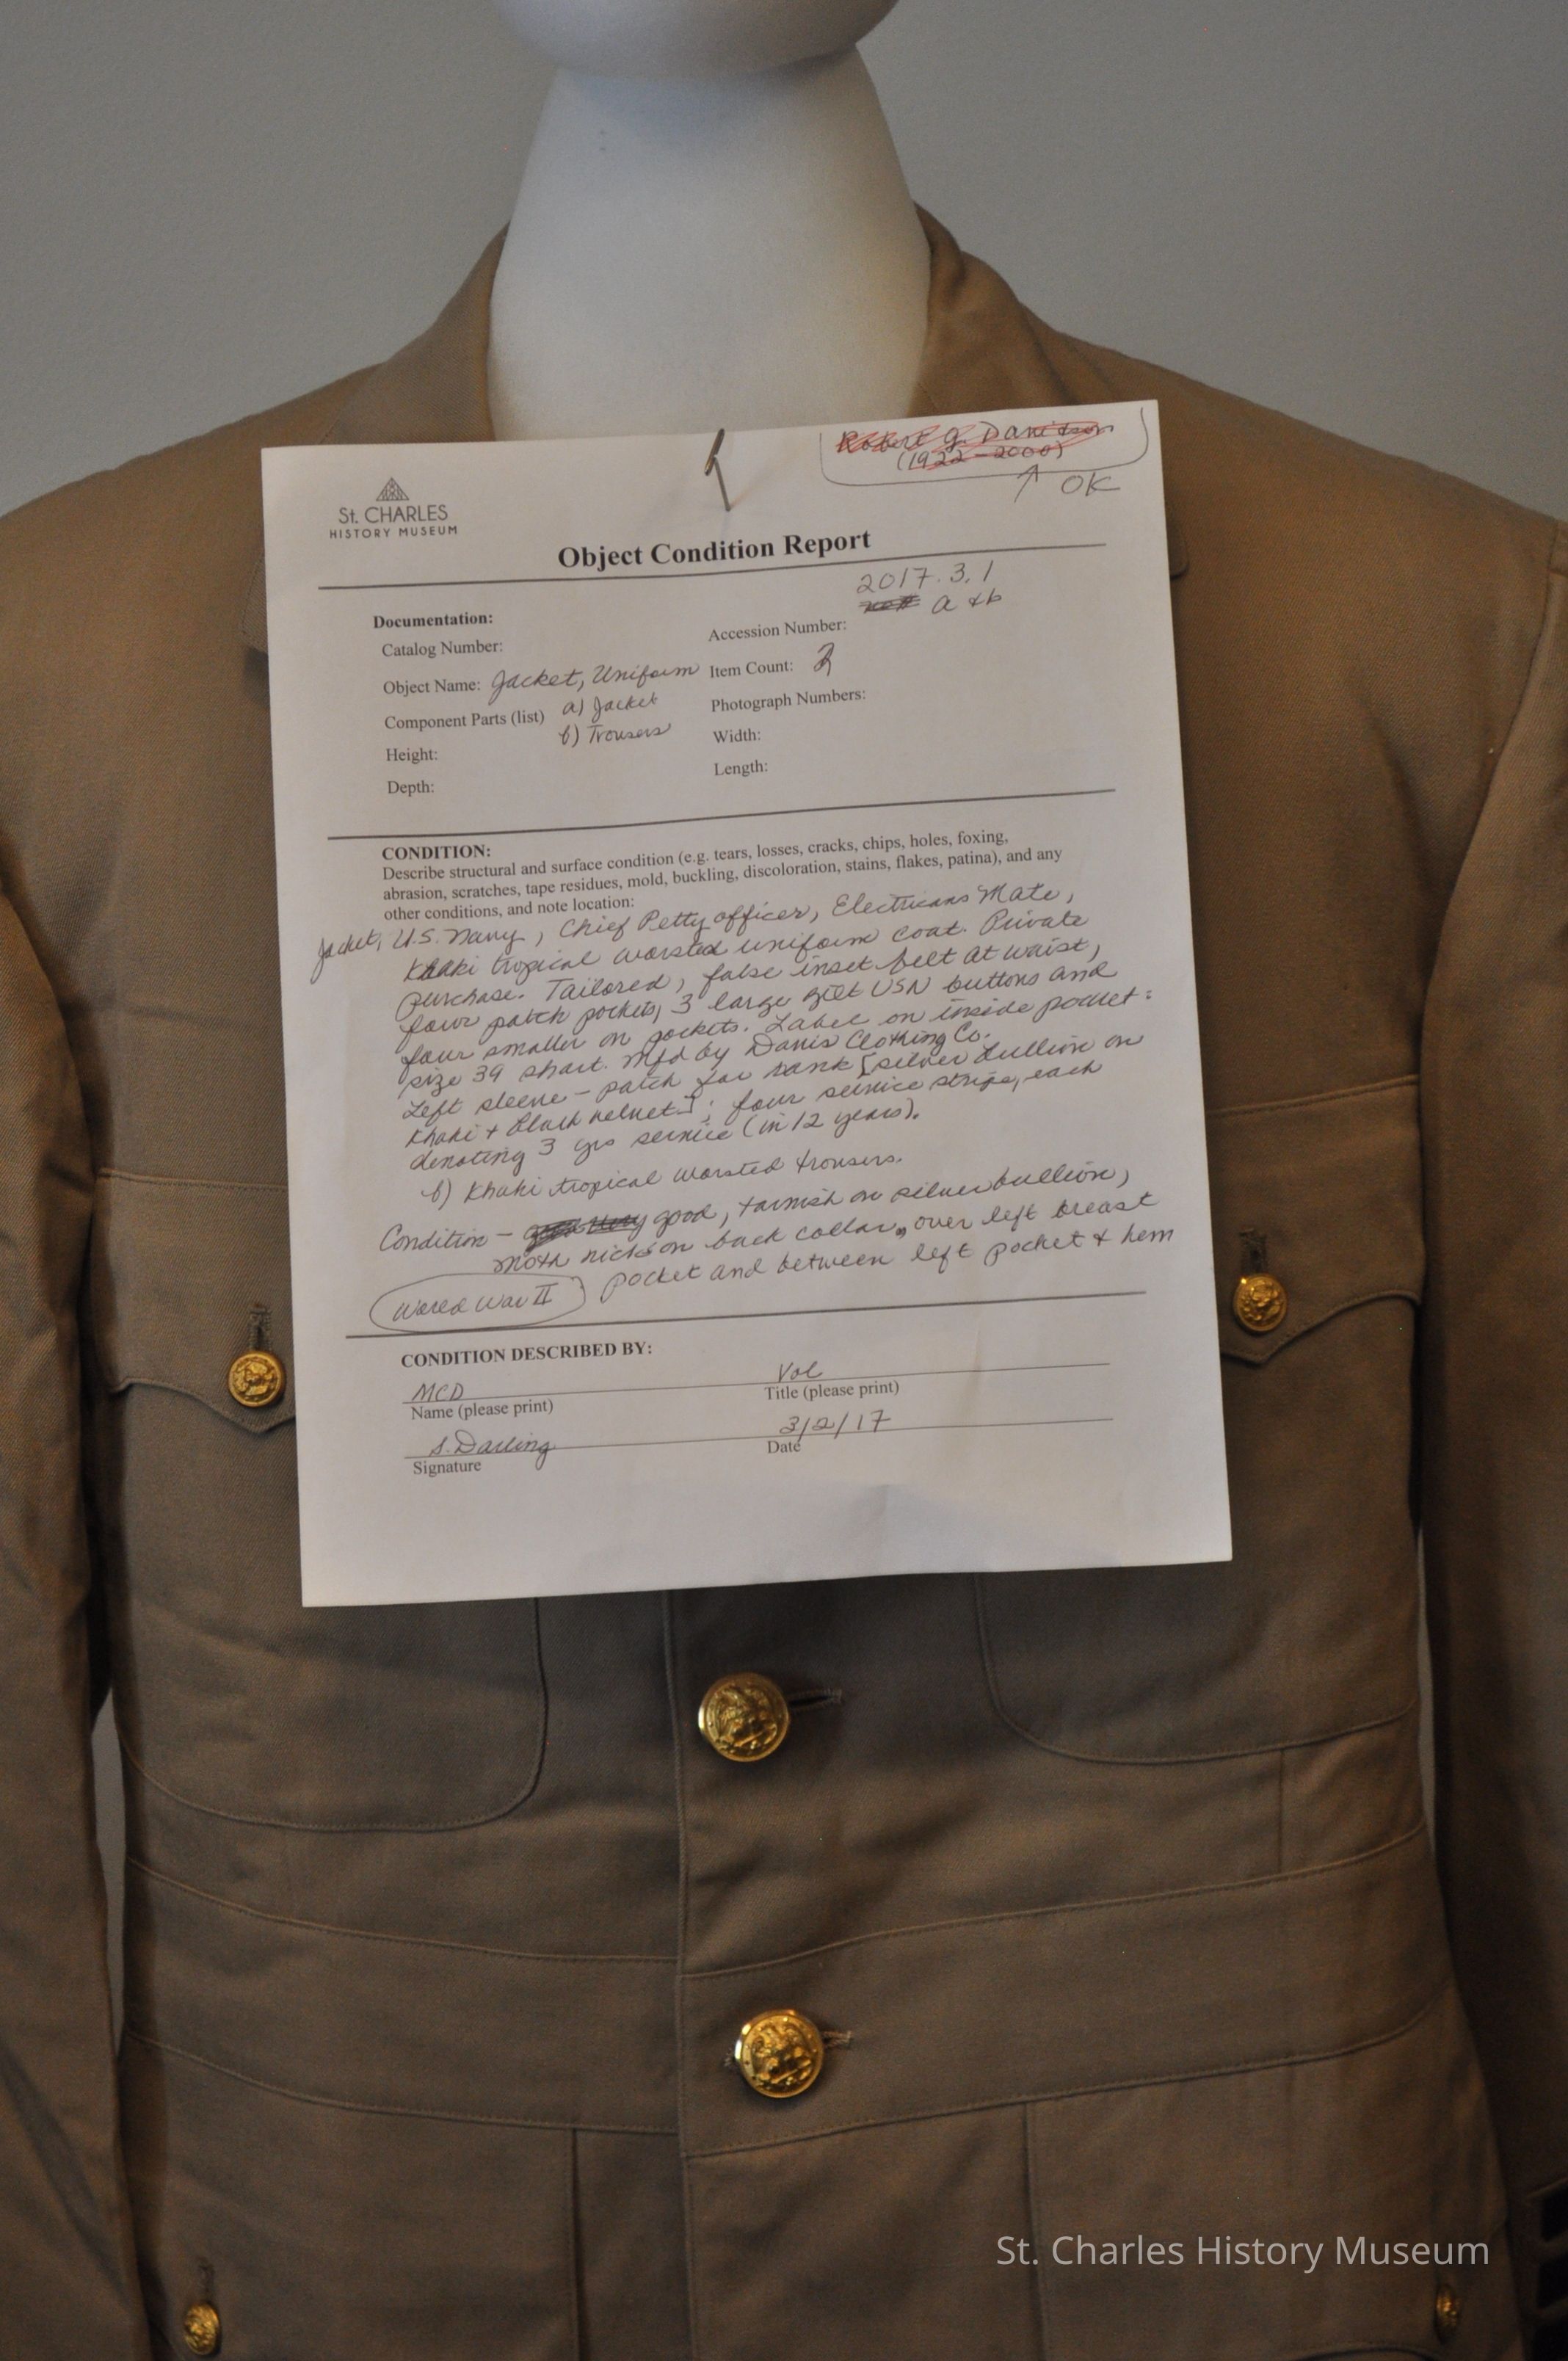 Robert G. Davidson
(1922-2000)
↑ OK
St. CHARLES
HISTORY MUSEUM
Object Condition Report
2017.3.1
a + b
Documentation:
Catalog Number:
Accession Number:
Object Name: Jacket, Uniform
Item Count: 2
Component Parts (list) a) Jacket
Photograph Numbers:
b) Trousers
Height:
Width:
Depth:
Length:
CONDITION:
Describe structural and surface condition (e.g. tears, losses, cracks, chips, holes, foxing,
abrasion, scratches, tape residues, mold, buckling, discoloration, stains, flakes, patina), and any
other conditions, and note location:
Jacket, U.S. Navy, Chief Petty officer, Electricians Mate,
Khaki tropical worsted uniform coat. Private
purchase. Tailored, false inset belt at waist,
four patch pockets, 3 large gilt USN buttons and
four smaller on pockets. Label on inside pocket:
size 39 short. Mfd by Danis Clothing Co.
Left sleeve - patch for rank [silver bullion on
Khaki + black velvet]; four service strips, each
denoting 3 yrs service (in 12 years).
b) Khaki tropical worsted trousers.
Condition - good, tarnish on silver bullion,
moth nicks on back collar, over left breast
pocket and between left pocket & hem
World War II
CONDITION DESCRIBED BY:
MCD
Vol
Name (please print)
Title (please print)
S. Darling
3/2/17
Signature
Date
St. Charles History Museum